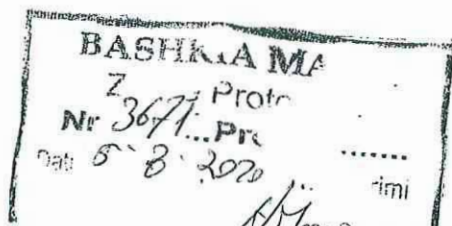 BASHKIA MA
Z Proto
Nr 3671...Pr .......
Dat 5 8 2020 rimi